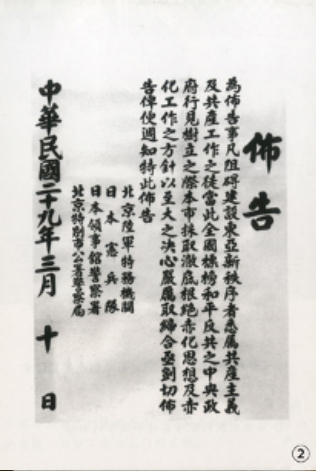 佈告
為佈告事凡阻碍建設東亞新秩序者悉屬共產主義
及共產工作之徒當此全國標榜和平反共之中央政
府行見樹立之際本市採取澈底根絕赤化思想及赤
化工作之方針以至大之決心嚴厲取締合亟剴切佈
告俾便週知特此佈告
北京陸軍特務機關
日本憲兵隊
日本領事館警察署
北京特別市公署警察局
中華民國二十九年三月十日
②